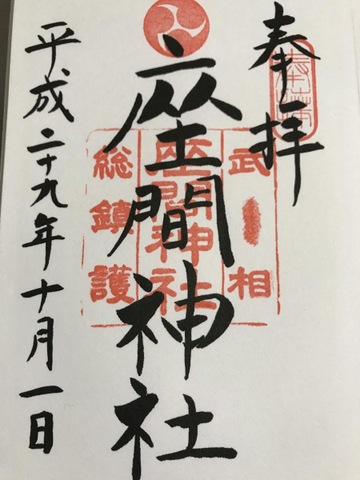 奉拝
武相
座間神社
総鎮護
座間神社
平成二十九年十月一日